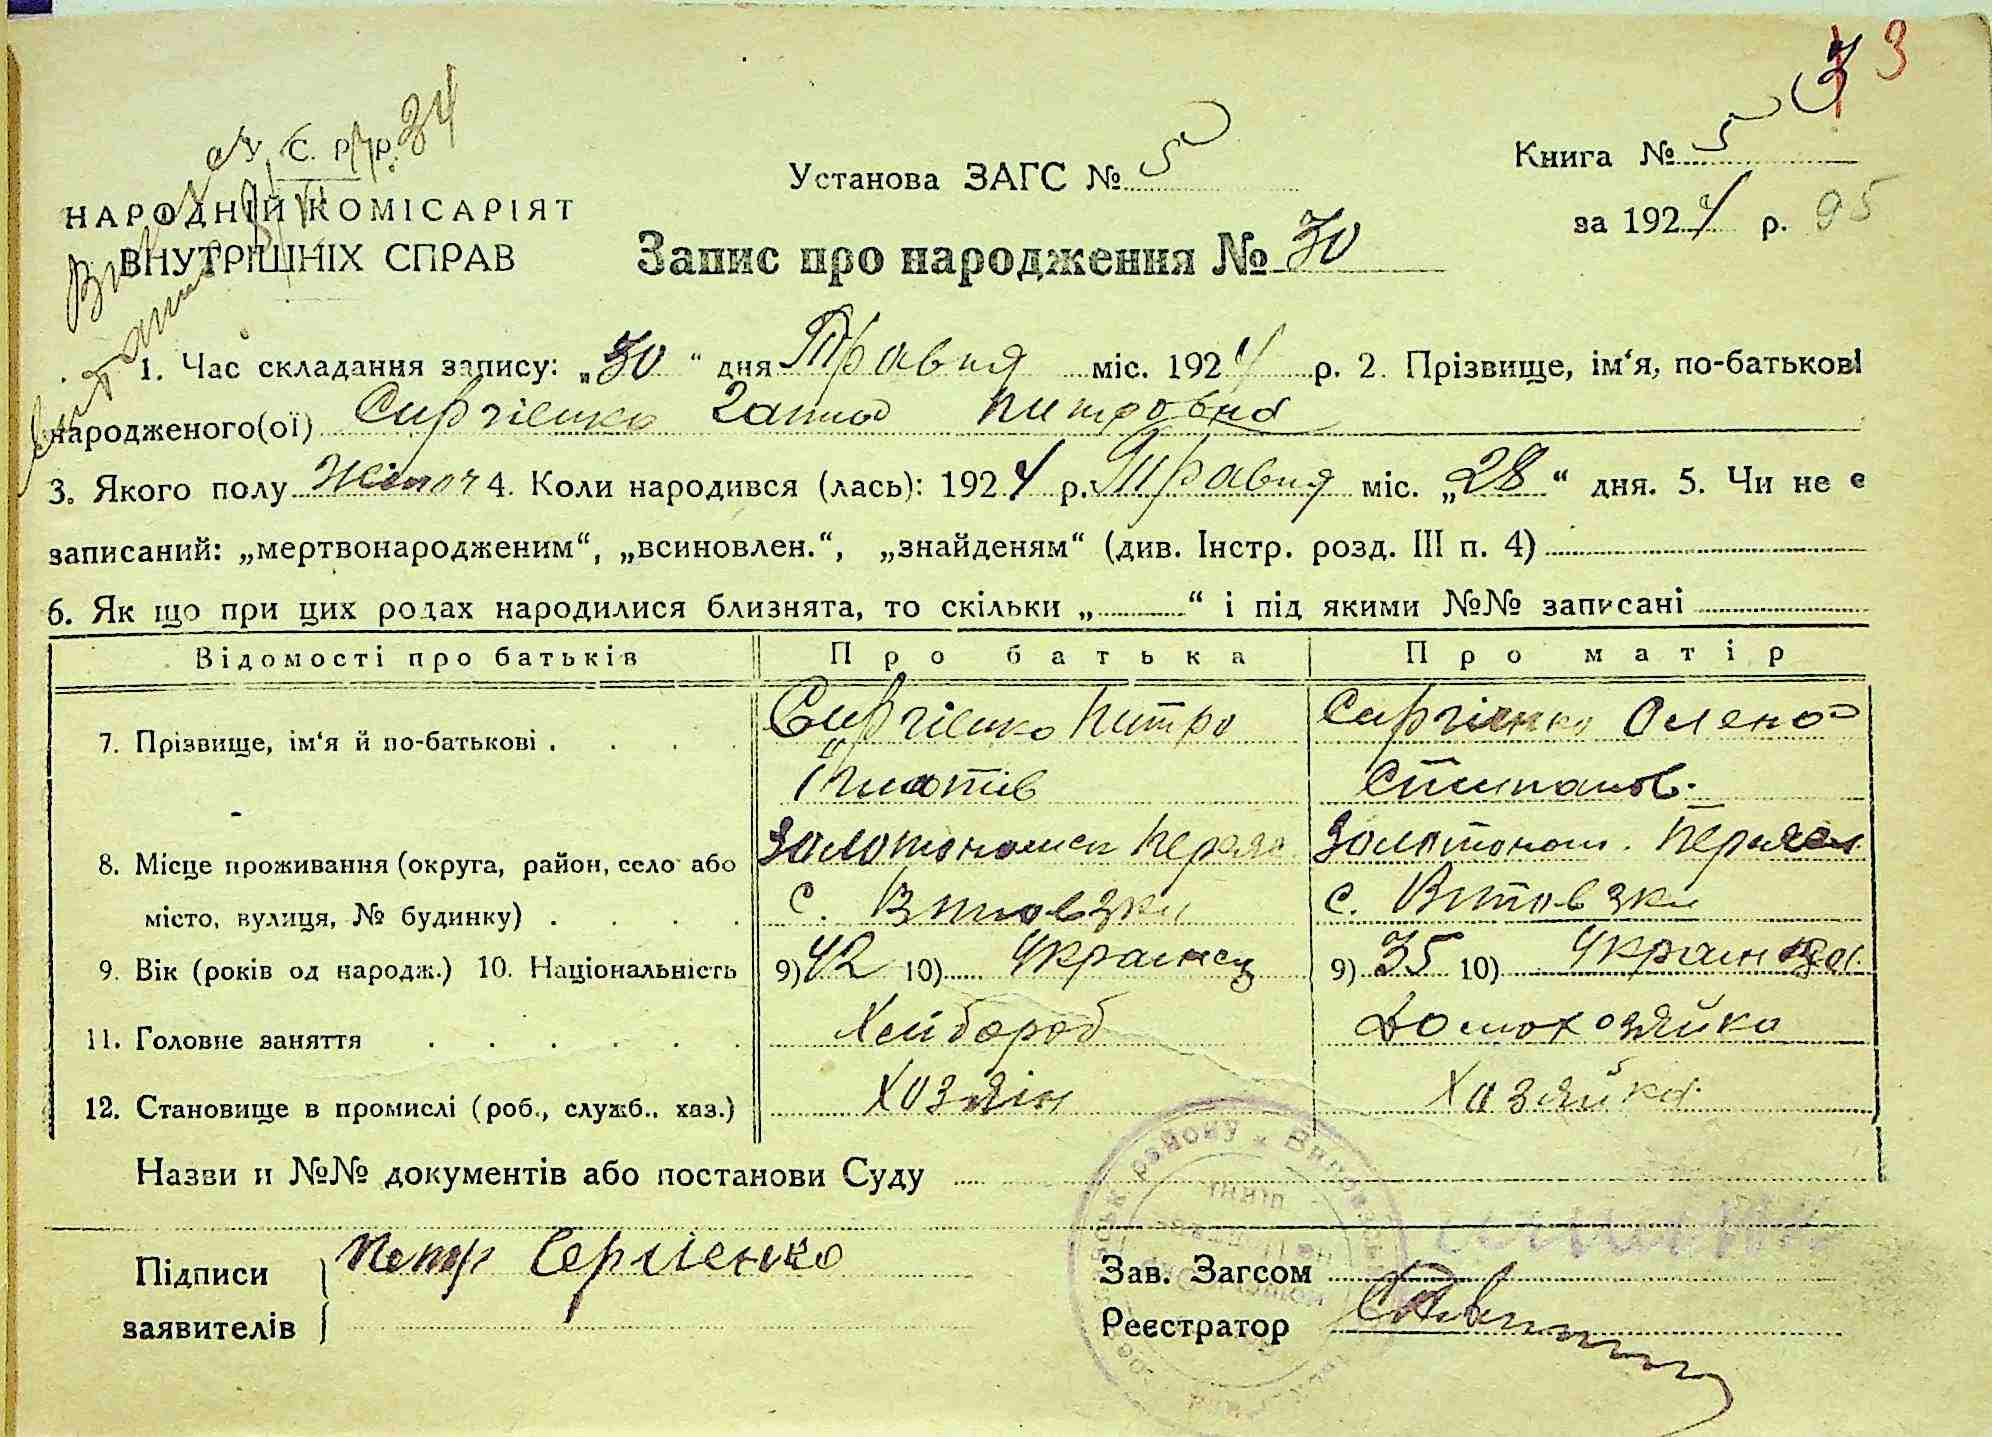 3 3
У. С. Р. Р. 34
Установа ЗАГС № 5
Книга № 5
НАРОДНІЙ КОМІСАРІЯТ
за 1924 р. 95
ВНУТРІШНІХ СПРАВ
Запис про народження № 30
1. Час складання запису: „30“ дня Травня міс. 1924 р. 2. Прізвище, ім‘я, по-батькові
народженого(ої) Сиргієнко Ганна Питровна
3. Якого полу Жіноч 4. Коли народився (лась): 1924 р. Травня міс. „28“ дня. 5. Чи не є
записаний: „мертвонародженим“, „всиновлен.“, „знайденям“ (див. Інстр. розд. III п. 4)
6. Як що при цих родах народилися близнята, то скільки „ “ і під якими №№ записані
Відомості про батьків Про батька Про матір
7. Прізвище, ім‘я й по-батькові Сиргієнко Питро Сиргієнко Олена
Степанов.
Золотоношен Переяс Золотонош. Переясл
8. Місце проживання (округа, район, село або
місто, вулиця, № будинку) с. с.
9. Вік (років од народж.) 10. Національність 9) 42 10) Украінец 9) 35 10) Украинка
11. Головне заняття Хлибороб Домохозяйка
12. Становище в промислі (роб., служб., хаз.) Хозяін Хозяйка
Назви и №№ документів або постанови Суду
Підписи Петр Сергіенко
заявителів
Зав. Загсом
Реєстратор